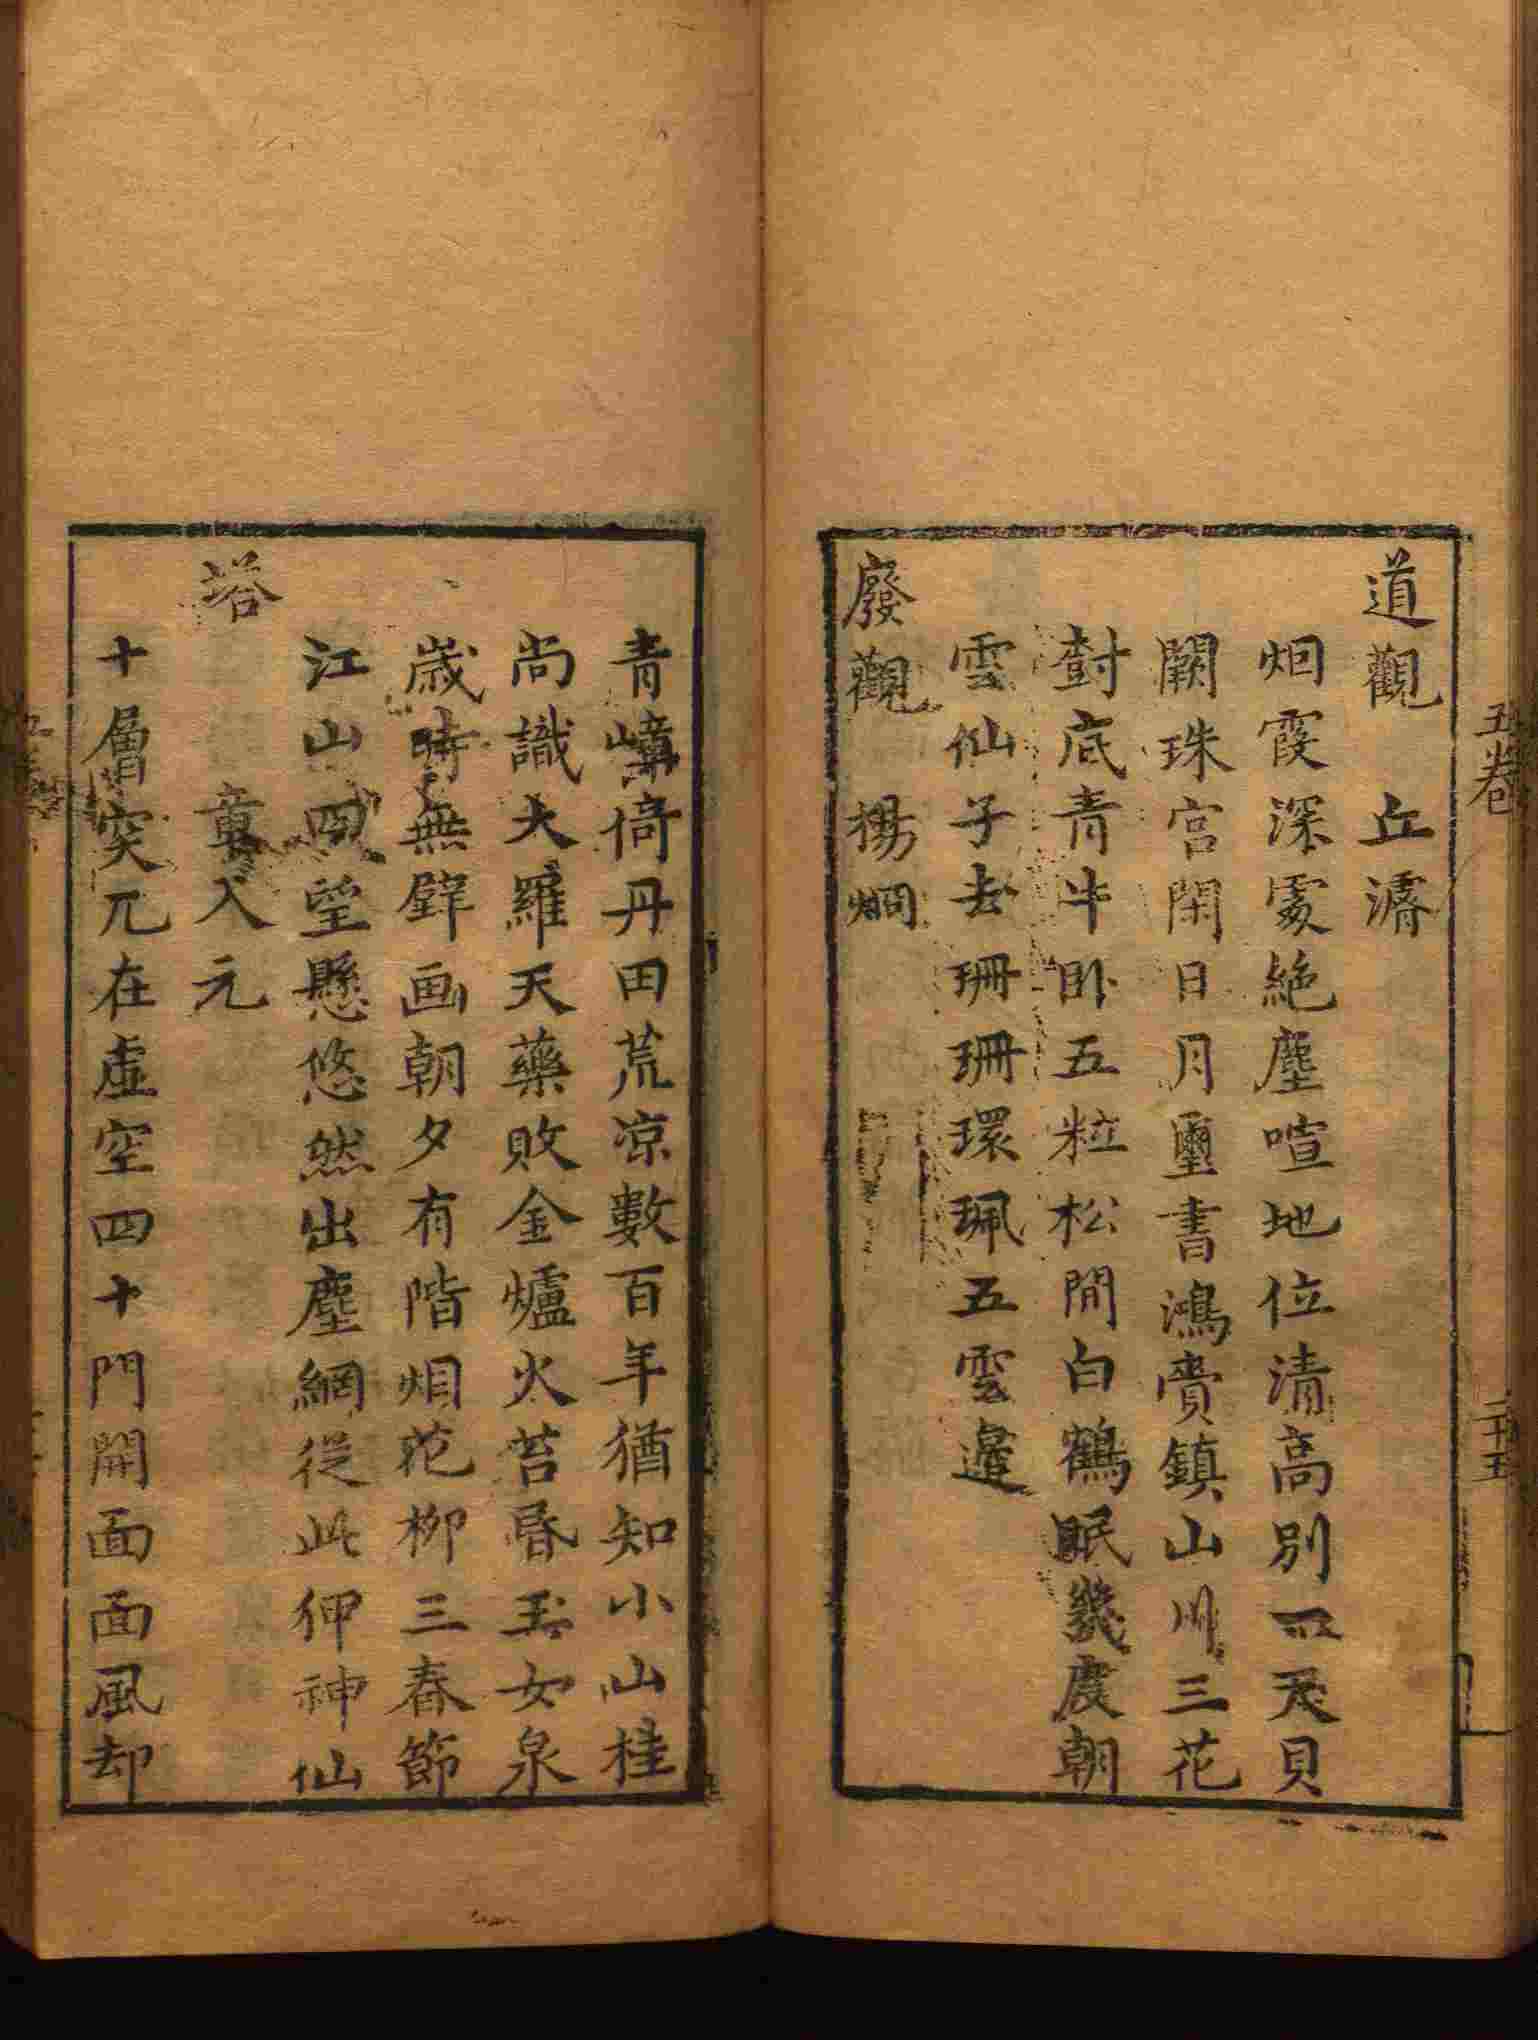 五卷
二十五
道觀　丘濬
烟霞深處絶塵喧地位清高別一天貝
闕珠宮閑日月璽書鴻賚鎮山川三花
樹底青牛卧五粒松間白鶴眠幾度朝
雲仙子去珊珊環珮五雲邊
廢觀　楊烱
青嶂倚丹田荒凉數百年猶知小山桂
尚識大羅天藥敗金爐火苔昏玉女泉
歳時無壁画朝夕有階烟花柳三春節
江山四望懸悠然出塵網從此狎神仙
塔
章八元
十層突兀在虛空四十門開面面風却